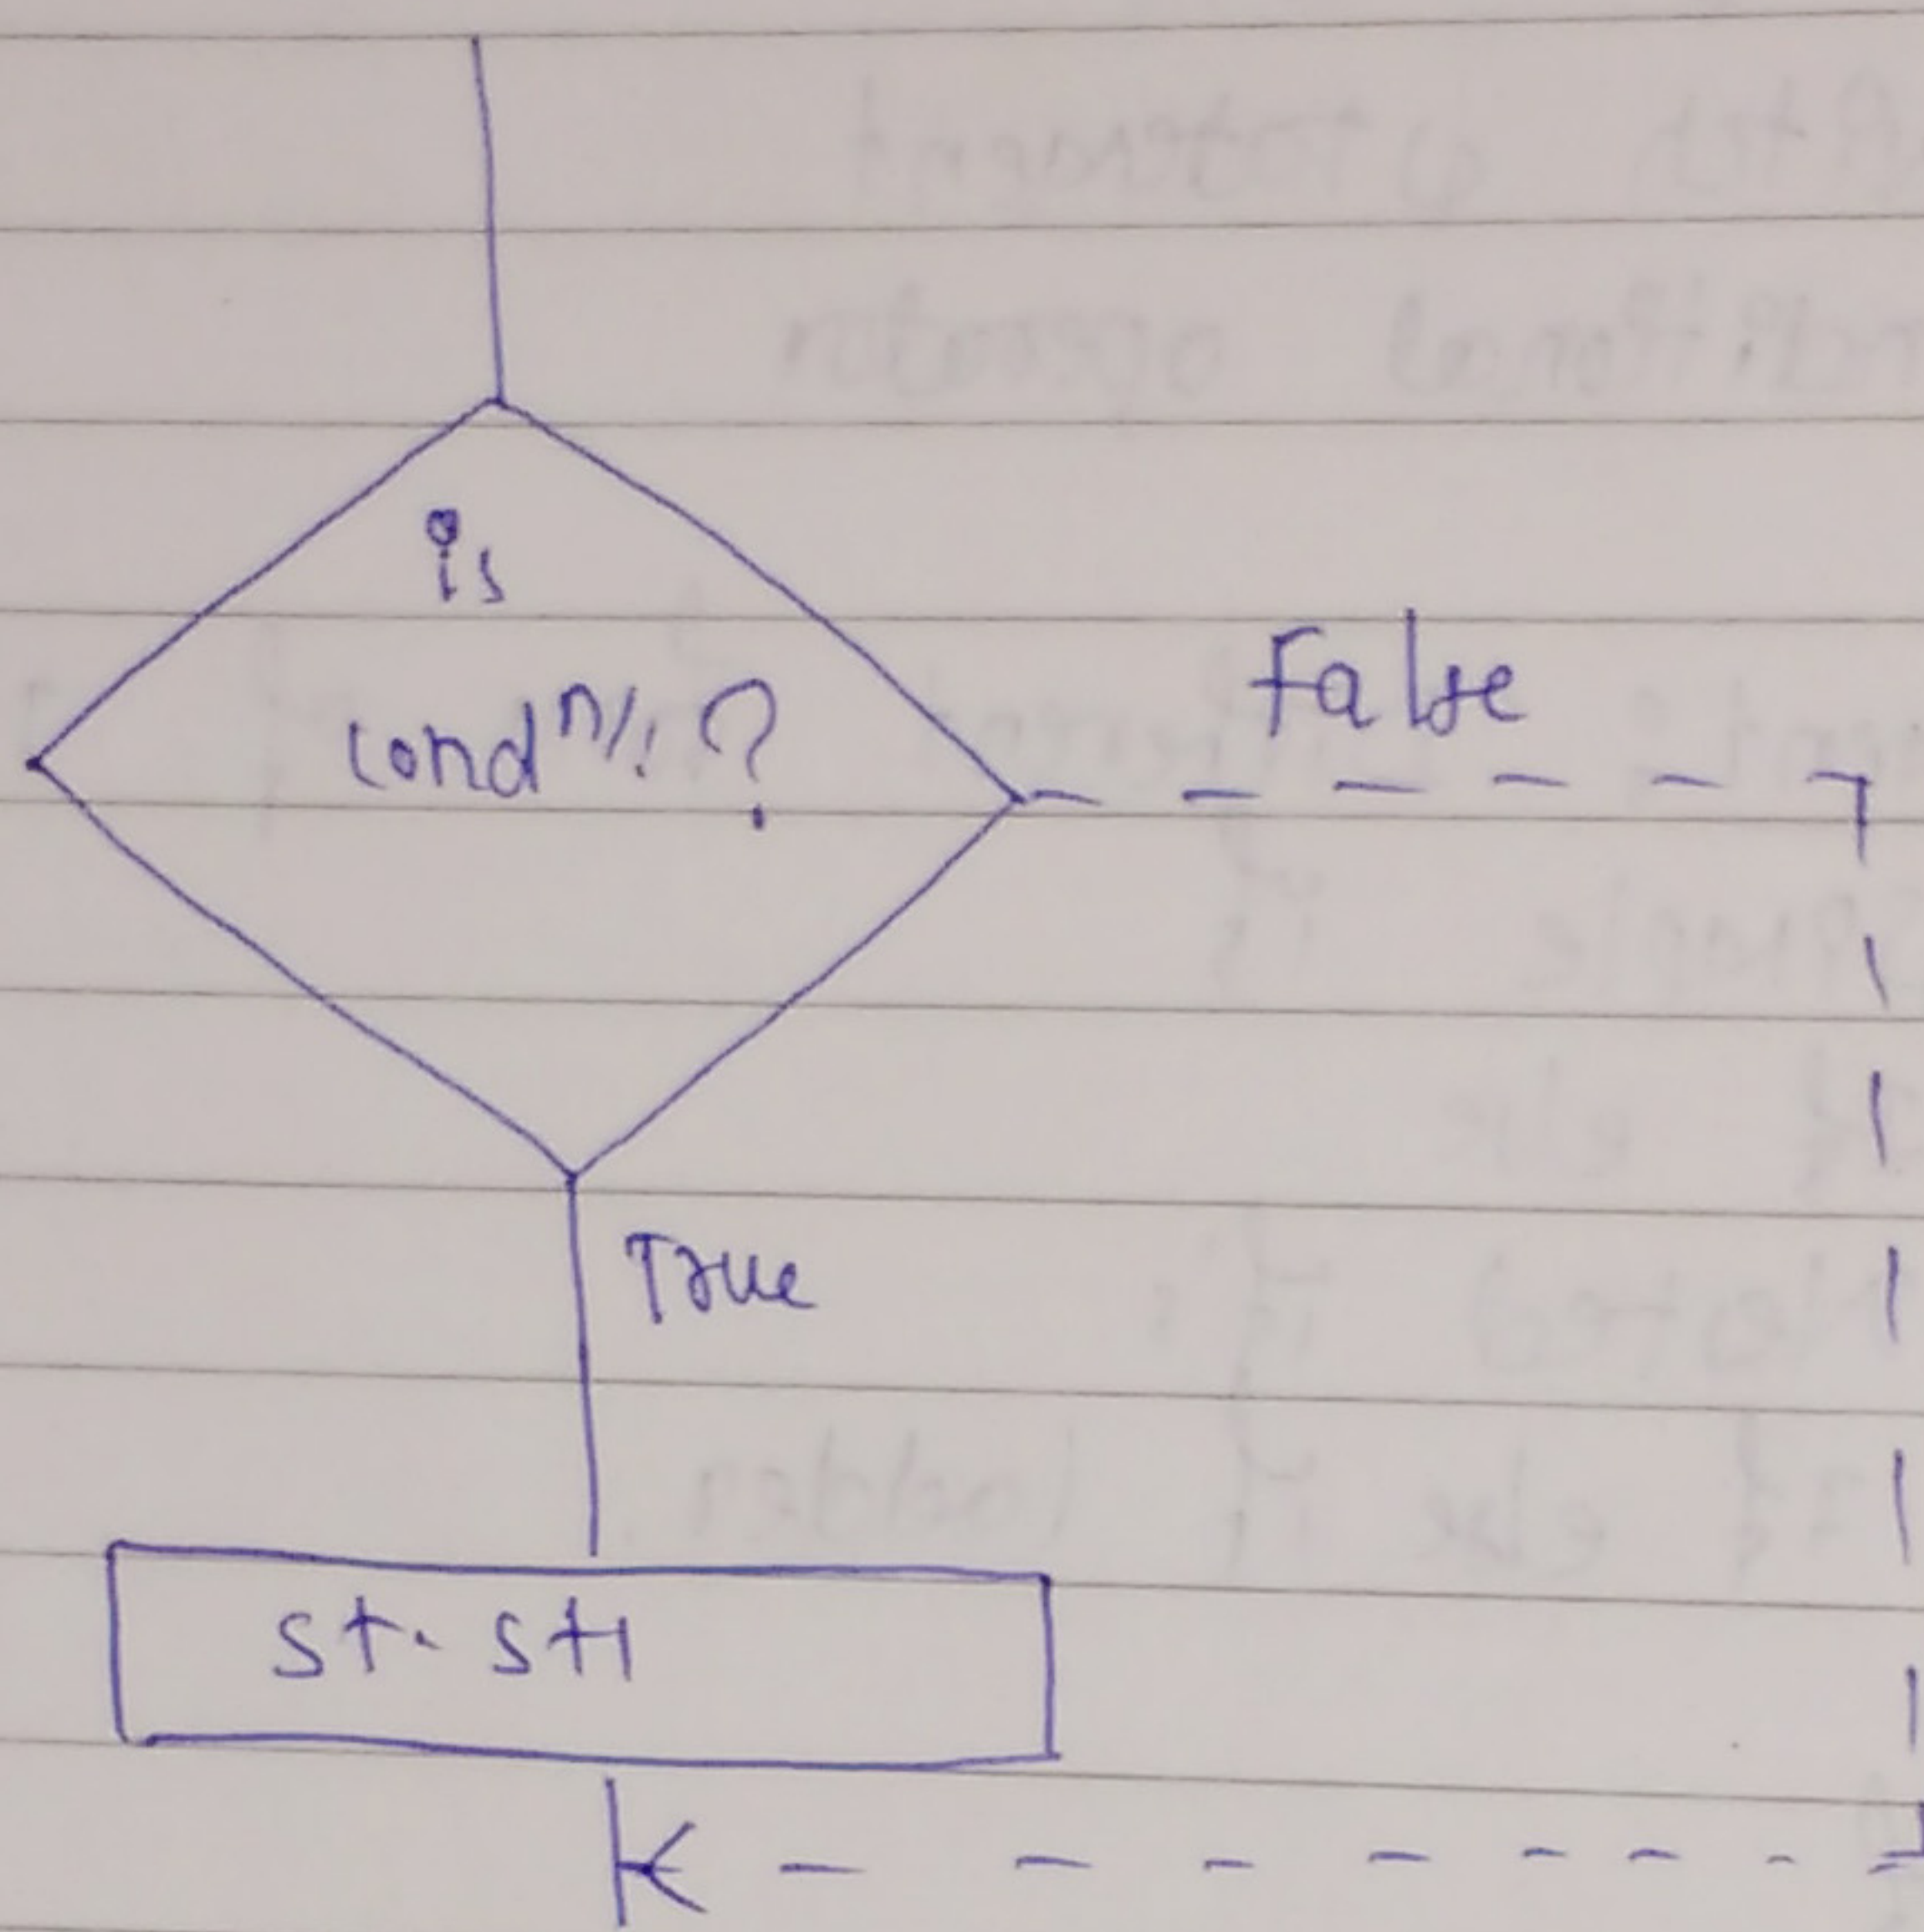 is
condⁿ/: ?
False
True
st. st1